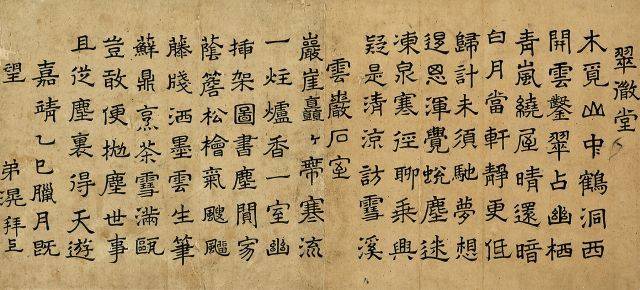 翠微堂
木覓山中鶴洞西
開雲鑿翠占幽栖
青嵐繞屋晴還暗
白月當軒靜更低
歸計未須馳夢想
渾覺蛻塵迷
凍泉寒徑聊乘興
疑是清涼訪雪溪
雲巖石室
巖崖矗〻帶寒流
一炷爐香一室幽
揷架圖書塵閒
蔭簷松檜氣颼飀
藤牋洒墨雲生筆
蘇鼎烹茶雪滿甌
豈敢便抛塵世事
且從塵裏得天遊
嘉靖乙巳臘月既
望 弟滉拜上